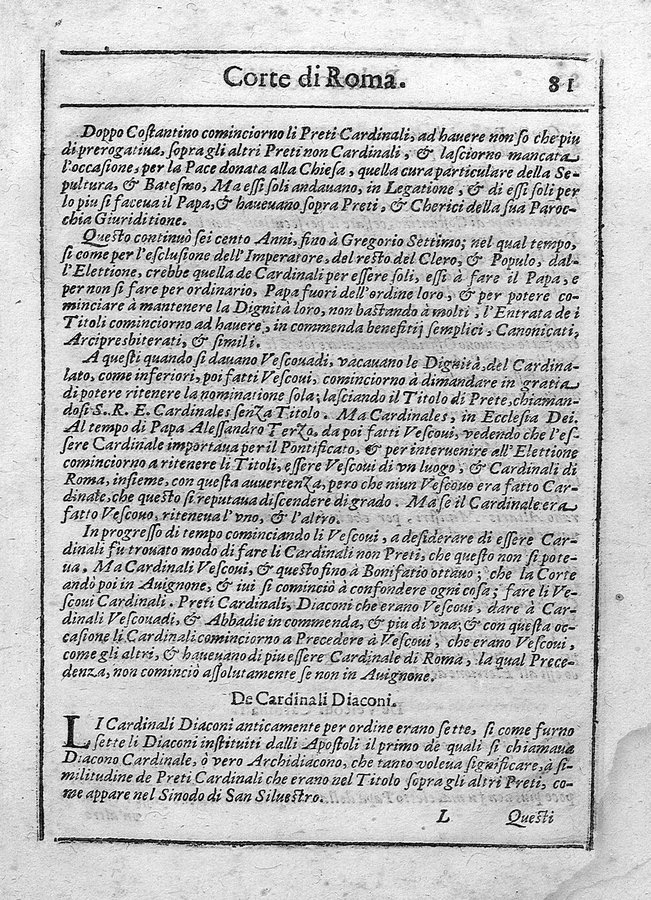 Corte di Roma. 81
Doppo Costantino cominciorno li Preti Cardinali, ad havere non so che piu
di prerogativa, sopra gli altri Preti non Cardinali, & lasciorno mancata
l'occasione, per la Pace donata alla Chiesa, quella cura particulare della Se-
pultura, & Batesmo, Ma essi soli andauano, in Legatione, & di essi soli per
lo piu si faceua il Papa, & haueuano sopra Preti, & Cherici della sua Paroc-
chia Giuriditione.
Questo continuò sei cento Anni, fino à Gregorio Settimo; nel qual tempo,
si come per l'esclusione dell'Imperatore, del resto del Clero, & Populo, dal-
l'Elettione, crebbe quella de Cardinali per essere soli, essi à fare il Papa, e
per non si fare per ordinario, Papa fuori dell'ordine loro, & per potere co-
minciare à mantenere la Dignità loro, non bastando à molti, l'Entrata de i
Titoli cominciorno ad hauere, in commenda benefitij semplici, Canonicati,
Arcipresbiterati, & simili.
A questi quando si dauano Vescouadi, vacauano le Dignità, del Cardina-
lato, come inferiori, poi fatti Vescoui, cominciorno à dimandare in gratia
di potere ritenere la nominatione sola; lasciando il Titolo di Prete, chiaman-
dosi S. R. E. Cardinales senza Titolo. Ma Cardinales, in Ecclesia Dei.
Al tempo di Papa Alessandro Terzo. da poi fatti Vescoui, vedendo che l'es-
sere Cardinale importaua per il Pontificato, & per interuenire all'Elettione
cominciorno à ritenere li Titoli, essere Vescoui di vn luogo, & Cardinali di
Roma, insieme, con questa auuertenza, pero che niun Vescouo era fatto Car-
dinale, che questo si reputaua discendere di grado. Ma se il Cardinale era
fatto Vescouo, riteneua l'vno, & l'altro.
In progresso di tempo cominciando li Vescoui, a desiderare di essere Car-
dinali fu trouato modo di fare li Cardinali non Preti, che questo non si pote-
ua, Ma Cardinali Vescoui, & questo fino à Bonifatio ottauo; che la Corte
andò poi in Auignone, & iui si cominciò à confondere ogni cosa; fare li Ve-
scoui Cardinali. Preti Cardinali, Diaconi che erano Vescoui, dare à Car-
dinali Vescouadi, & Abbadie in commenda, & piu di vna; & con questa oc-
casione li Cardinali cominciorno a Precedere à Vescoui, che erano Vescoui,
come gli altri, & haueuano di piu essere Cardinale di Roma, la qual Prece-
denza, non cominciò assolutamente se non in Auignone.
De Cardinali Diaconi.
LI Cardinali Diaconi anticamente per ordine erano sette, si come furno
sette li Diaconi instituiti dalli Apostoli il primo de quali si chiamaua
Diacono Cardinale, ò vero Archidiacono, che tanto voleua significare, à si-
militudine de Preti Cardinali che erano nel Titolo sopra gli altri Preti, co-
me appare nel Sinodo di San Siluestro.
L Questi